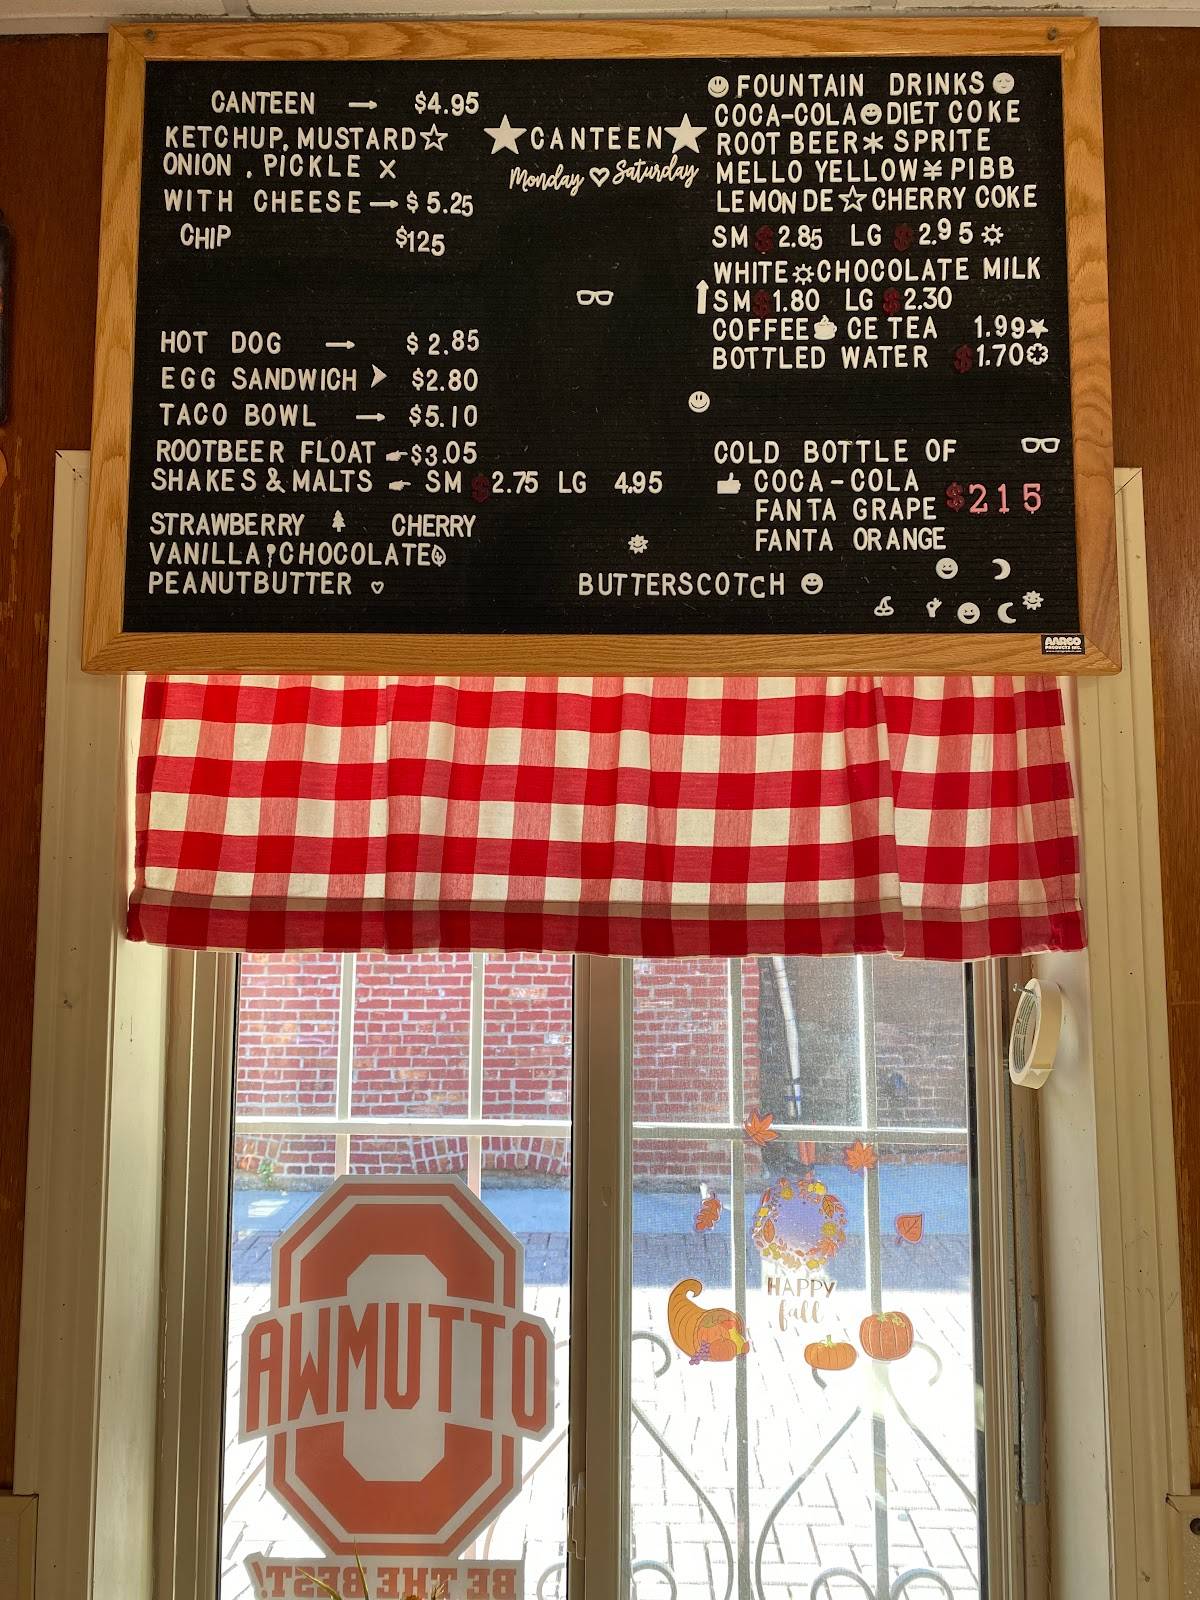 CANTEEN → $4.95
KETCHUP, MUSTARD ☆
ONION , PICKLE X
WITH CHEESE → $ 5.25
CHIP $125
HOT DOG → $ 2.85
EGG SANDWICH $2.80
TACO BOWL → $5.10
ROOTBEER FLOAT $3.05
SHAKES & MALTS SM $2.75 LG 4.95
STRAWBERRY CHERRY
VANILLA CHOCOLATE
PEANUTBUTTER ♡
★CANTEEN★
Monday ♡ Saturday
BUTTERSCOTCH
FOUNTAIN DRINKS
COCA-COLA DIET COKE
ROOT BEER * SPRITE
MELLO YELLOW ¥ PIBB
LEMON DE ☆ CHERRY COKE
SM $ 2.85 LG $ 2.95
WHITE CHOCOLATE MILK
SM $1.80 LG $2.30
COFFEE CE TEA 1.99
BOTTLED WATER $1.70
COLD BOTTLE OF
COCA-COLA
FANTA GRAPE $215
FANTA ORANGE
AARCO
PRODUCTS INC.
HAPPY
fall
OTTUMWA
BE THE BEST!